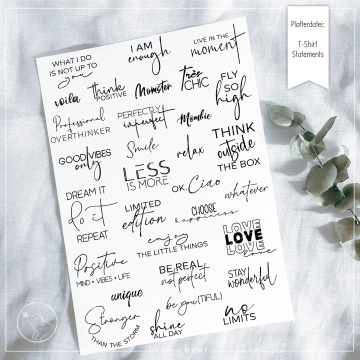 Plotterdatei:
T-Shirt
Statements
WHAT I DO
IS NOT UP TO
you
I AM
enough.
LIVE IN THE
moment
voila
think
POSITIVE
Monster
très
CHIC
FLY
SO
high
Professional
OVERTHINKER
PERFECTLY
imperfect
Mombie
THINK
outside
THE BOX
GOOD VIBES
only
Smile
relax
LESS
IS MORE
OK. Ciao
whatever
DREAM IT
do it
REPEAT
LIMITED
edition
CHOOSE
happiness
LOVE
LOVE
LOVE
love
enjoy
THE LITTLE THINGS
Positive
MIND • VIBES • LIFE
BE REAL
not perfect
STAY
wonderful
unique
be you(TIFUL)
Stronger
THAN THE STORM
shine
ALL DAY
no
LIMITS